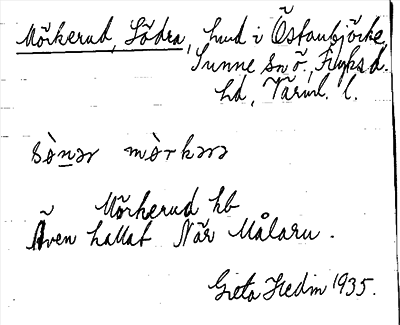 Mörkerud, Södra, hmd i Östanbjörke,
Sunne sn ö., Fryksd.
hd, Värml. l.
sò̱nər mò̱rkərə
Mörkerud hb
Även kallat När Målarn.
Greta Hedin 1935.